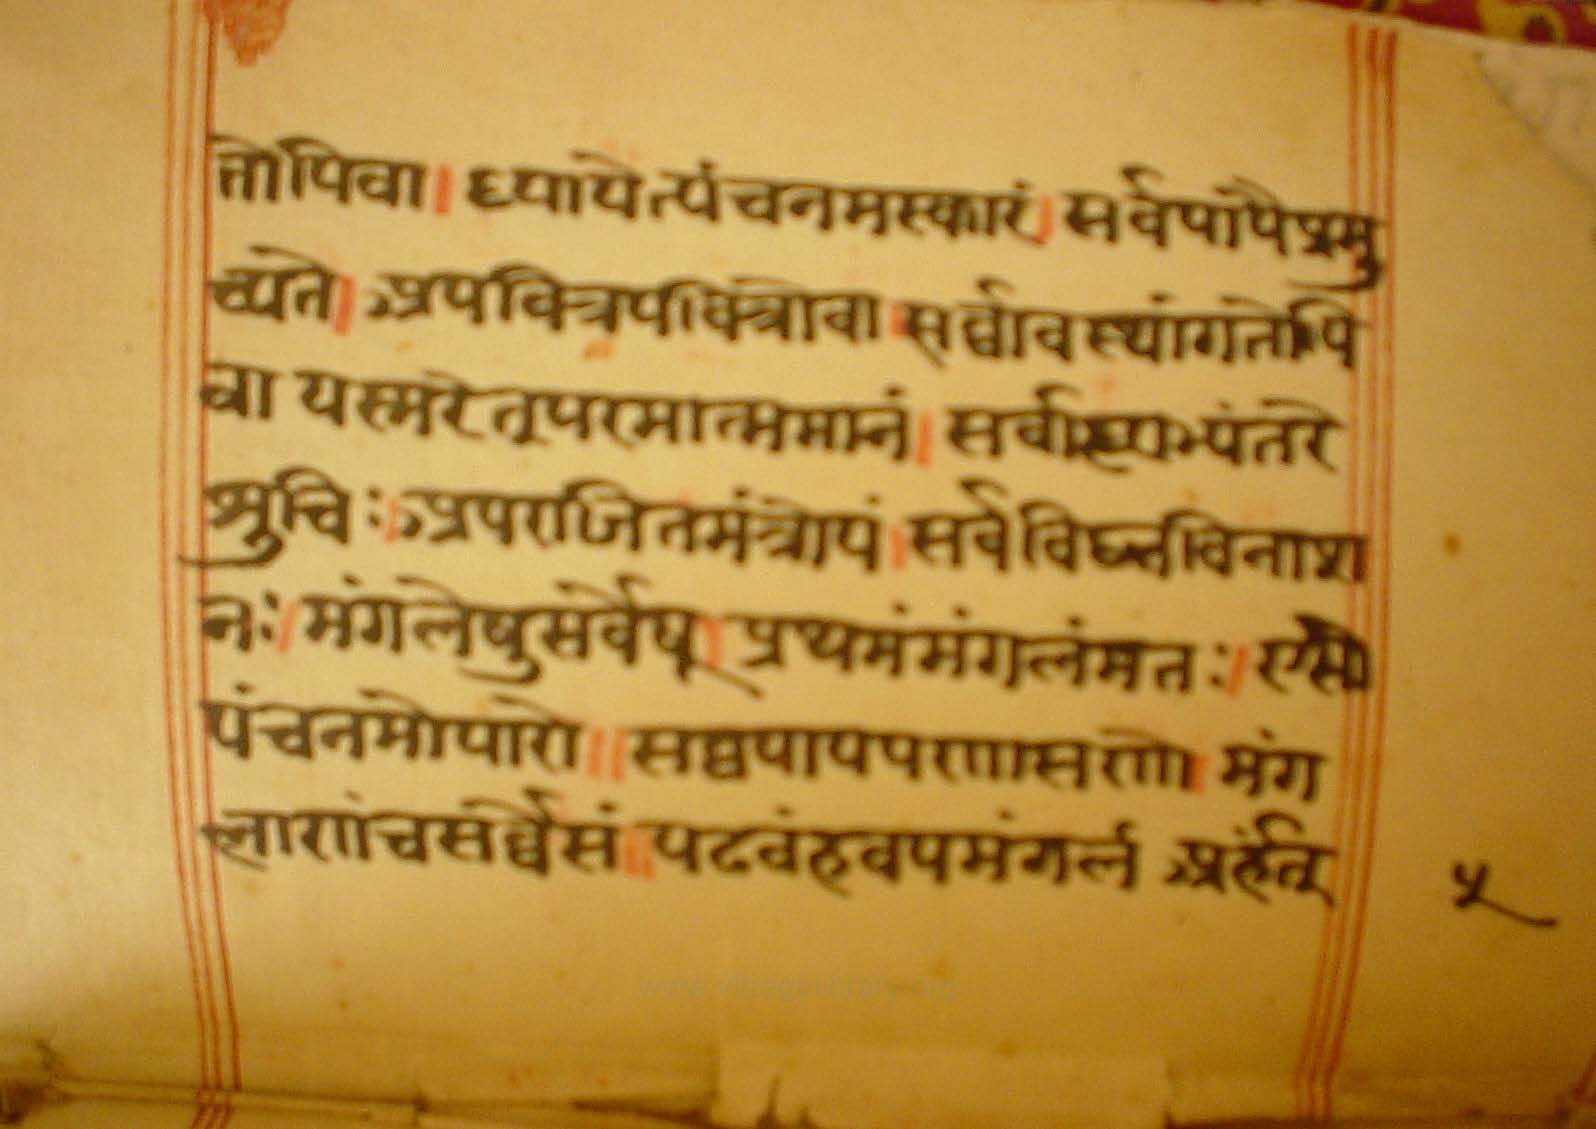 तोपिवा। ध्यायेत्पंचनमस्कारं। सर्वपापैप्रमु
च्यते। अपवित्रपवित्रोवा सर्व्वावस्थांगतोपि
वा यस्मरेत्परमात्ममानं। सर्वाह्याभ्यंतरे
श्रुचिः। अपराजितमंत्रोयं। सर्वविघ्नविनाश
नः। मंगलेषुसर्वेषू। प्रथमंमंगलंमतः। एसो
पंचनमोयारो।। सव्वपापपणासणो। मंग
लाणांचसर्व्वेसं।। पढवंहवयमंगलं अर्हंत्
५